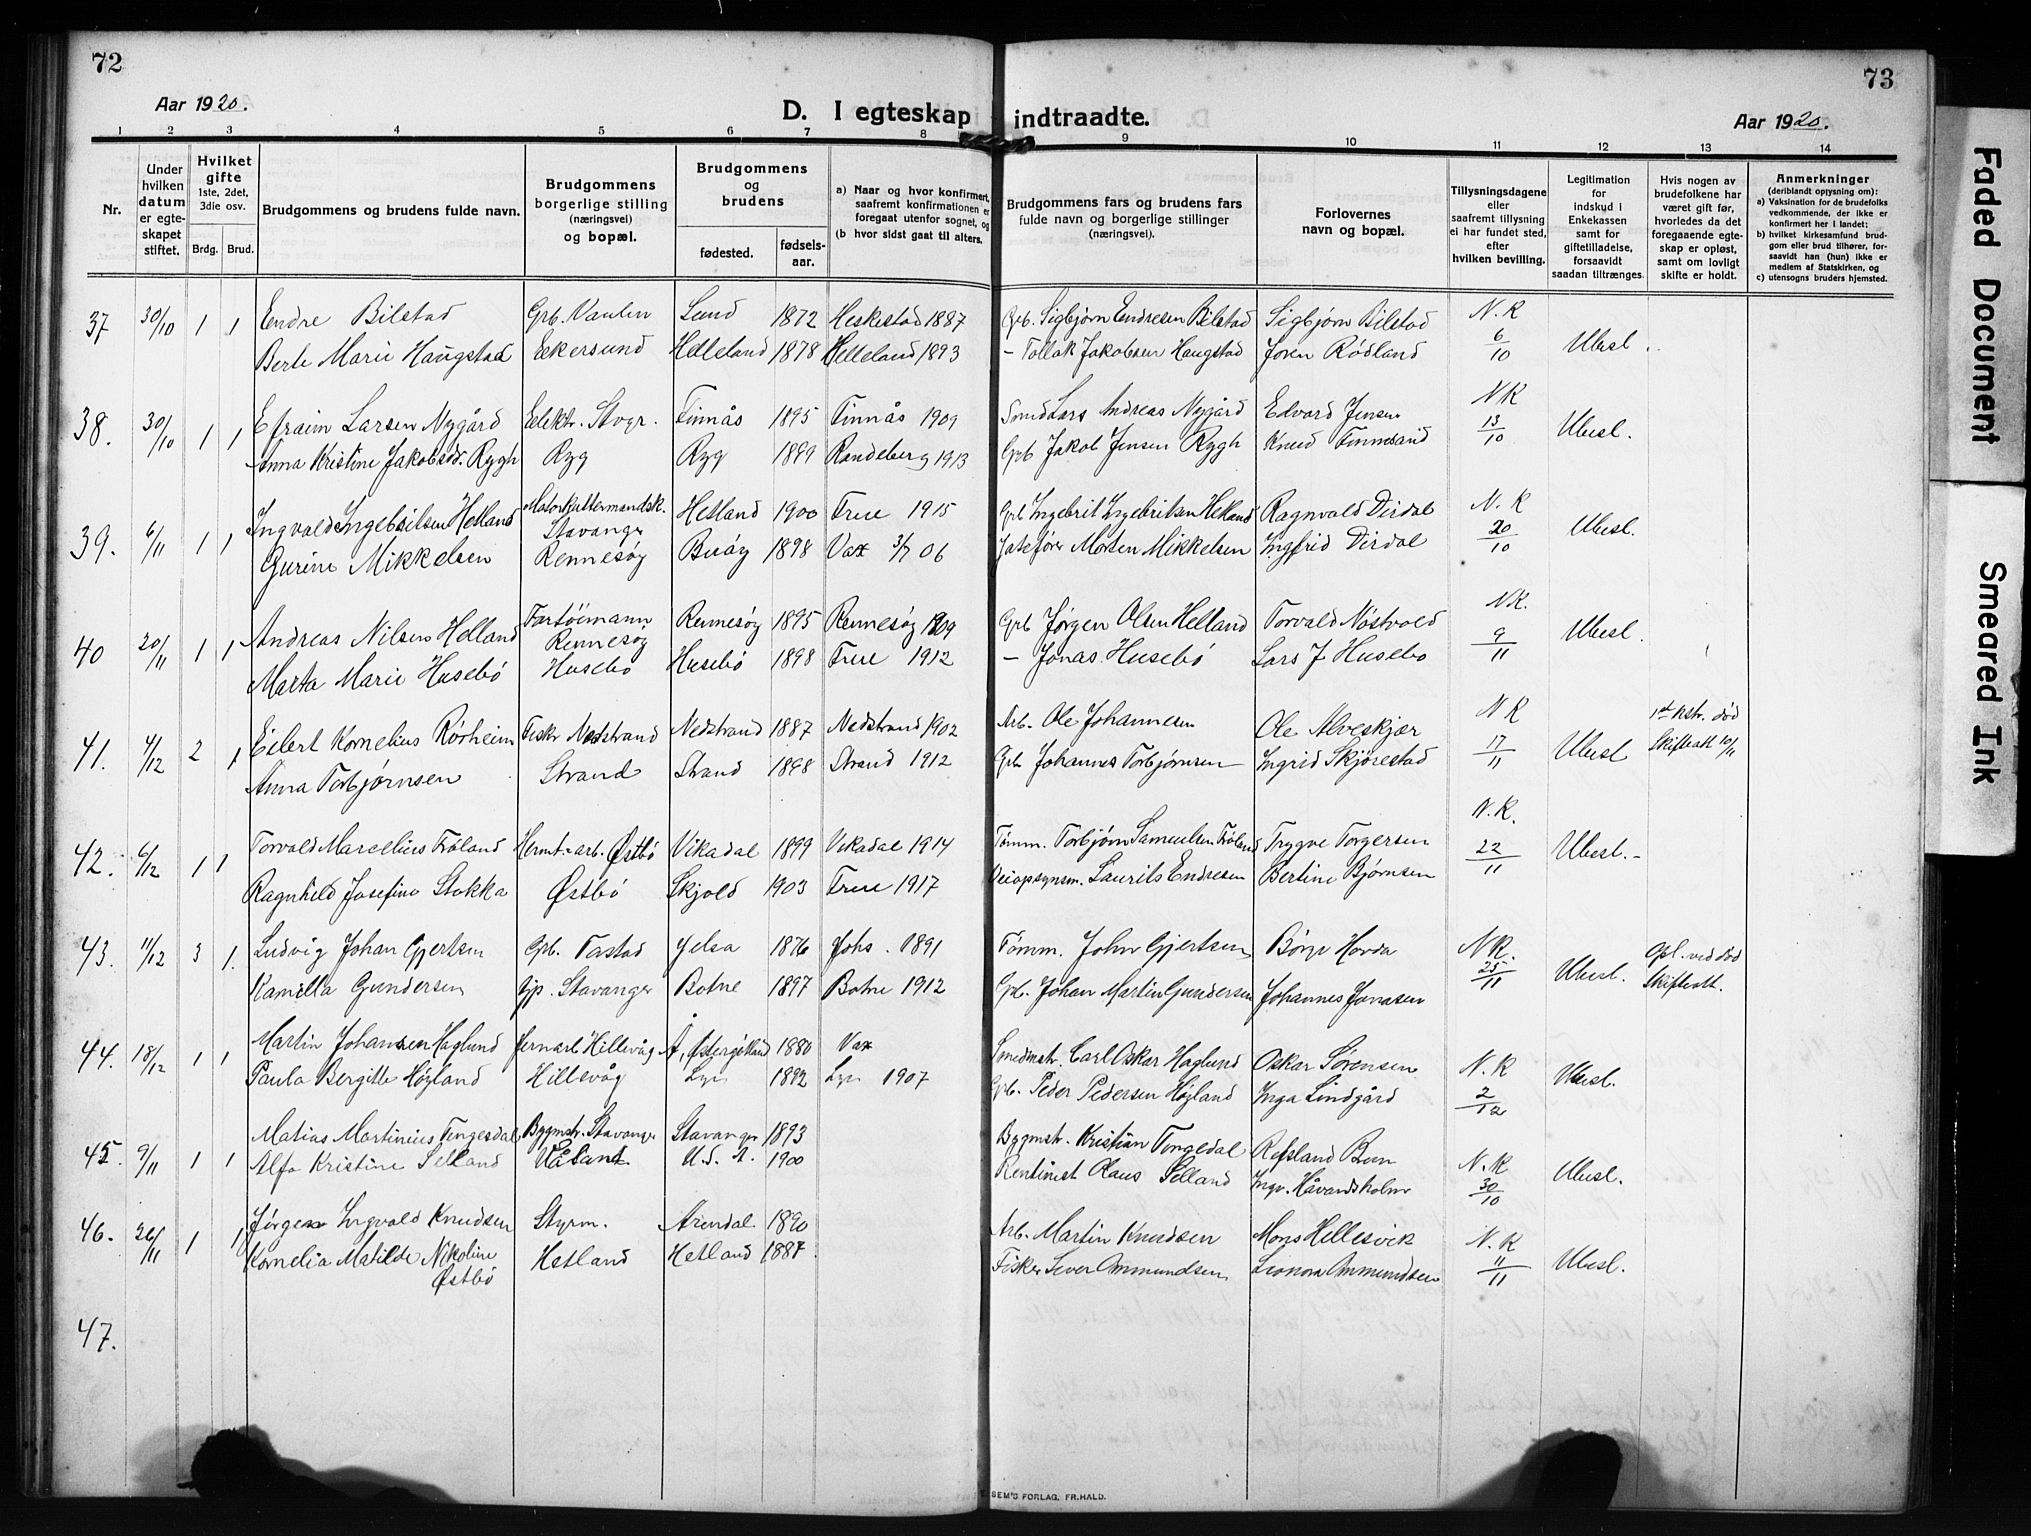 72
73
Aar 1920.
D. I egteskap indtraadte.
Aar 1920.
1 2 3 4 5 6 7 8 9 10 11 12 13 14
Nr.
Under hvilken datum er egteskapet stiftet.
Hvilket gifte 1ste, 2det, 3die osv.
Brdg. Brud.
Brudgommens og brudens fulde navn.
Brudgommens borgerlige stilling (næringsvei) og bopæl.
Brudgommens og brudens
fødested. fødselsaar.
a) Naar og hvor konfirmert, saafremt konfirmationen er foregaat utenfor sognet, og
(b hvor sidst gaat til alters.
Brudgommens fars og brudens fars fulde navn og borgerlige stillinger (næringsvei).
Forlovernes navn og bopæl.
Tillysningsdagene eller saafremt tillysning ei har fundet sted, efter hvilken bevilling.
Legitimation for indskud i Enkekassen samt for giftetilladelse, forsaavidt saadan tiltrænges.
Hvis nogen av brudefolkene har været gift før, hvorledes da det foregaaende egteskap er opløst, samt om lovligt skifte er holdt.
Anmerkninger
(deriblandt oplysning om):
a) Vaksination for de brudefolks vedkommende, der ikke er konfirmert her i landet;
b) hvilket kirkesamfund brudgom eller brud tilhører, forsaavidt han (hun) ikke er medlem af Statskirken, og
c) utensogns bruders hjemsted.
37 30/10 1 1 Endre Bilstad Grb. Vaulen Lund 1872 Heskestad 1887 Grb. Sigbjørn Endresen Bilstad Sigbjørn Bilstad N.K 6/10 Ubesl.
Berte Marie Haugstad Eekersund Helleland 1878 Helleland 1893 – Tollak Jakobsen Haugstad Joren Rødland
38. 30/10 1 1 Efraim Larsen Nygård Eelektr. Stvgr. Finnås 1895 Finnås 1909 Smed Lars Andreas Nygård Edvard Jensen N K 13/10 Ubesl.
Anna Kristine Jakobsdr. Rygh Ryg Ryg 1899 Randeberg 1913 Grb Jakob Jensen Rygh Knud Finnesand
39. 6/11 1 1 Ingvald Ingebritsen Hetland Motorkuttermandsk. Stavanger Hetland 1900 Frue 1915 Grb Ingebrit Ingebritsen Hetland Ragnvald Dirdal N. K 20/10 Ubesl.
Gurine Mikkelsen Rennesøy Buøy 1898 Vax 3/7 06 Jateforer Morten Mikkelsen Ingfrid Dirdal
40 20/11 1 1 Andreas Nilsen Helland Fartöimann Rennesøy Rennesøy 1895 Rennesøy 1909 Grb Jørgen Olsen Helland Torvald Nöstvold NK. 9/11 Ubesl.
Marta Marie Husebö Husebö Husebö 1898 Frue 1912 – Jonas Husebö Lars J Husebo
41. 4/12 2 1 Eilert Kornelius Rörheim Fiskr Nedstrand Nedstrand 1887 Nedstrand 1902 Arb. Ole Johannesen Ole Alveskjær N K 17/11 Ubesl 1st hstr. død Skifteatt 10/11
Anna Torbjørnsen Strand Strand 1898 Strand 1912 Grb Johannes Torbjørnsen Ingrid Skjørestad
42. 6/12 1 1 Torvald Marcelius Fröland Hermt.-arb. Østbö Vikadal 1899 Vikadal 1914 Tømm. Torbjørn Samuelsen Fröland Trygve Torgersen N. K. 22/11 Ubesl.
Ragnhild Josefine Stokka Østbö Skjold 1903 Frue 1917 Veiopsynsm. Laurits Endresen Bertine Bjørnsen
43. 11/12 3 1. Ludvig Johan Gjertsen Grb. Tastad Jelsa 1876 Johs. 1891 Tömm. John Gjertsen Börge Hovda N K. 25/11 Ubesl. Opl. ved död Skifteatt.
Kamilla Gundersen Gp. Stavanger Botne 1897 Botne 1912 Grb. Johan Martin Gundersen Johannes Jonasen
44. 18/12 1 1 Martin Johansen Haglund Jernarb Hillevåg Å, Østergötland 1880 Vax Smedmstr. Carl Oskar Haglund Oskar Sörensen N. K 2/12 Ubesl.
Paula Bergitte Høyland Hillevåg Lye 1892 Lye 1907 Grb. Peder Pedersen Høyland Inga Lindgård
45. 9/11 1 1 Matias Martinius Tengesdal Bygmstr. Stavanger Stavanger 1893 Bygmstr. Kristian Tengesdal Refsland Bum N. K 30/10 Ubesl.
Alfa Kristine Selland Våland U.S. A. 1900 Rentinist Olaus Selland Ingv. Håvardsholm
46. 26/11 1 1 Jørgen Ingvald Knudsen Styrm. Arendal 1890 Arb. Martin Knudsen Mons Hellesvik N. K 11/11 Ubesl.
Kornelia Matilde Nikoline Østbö Hetland Hetland 1887 Fisker Sever Ammundsen Leonora Ammundsen
47.
SEM'S FORLAG, FR.HALD.
Faded Document
Smeared Ink